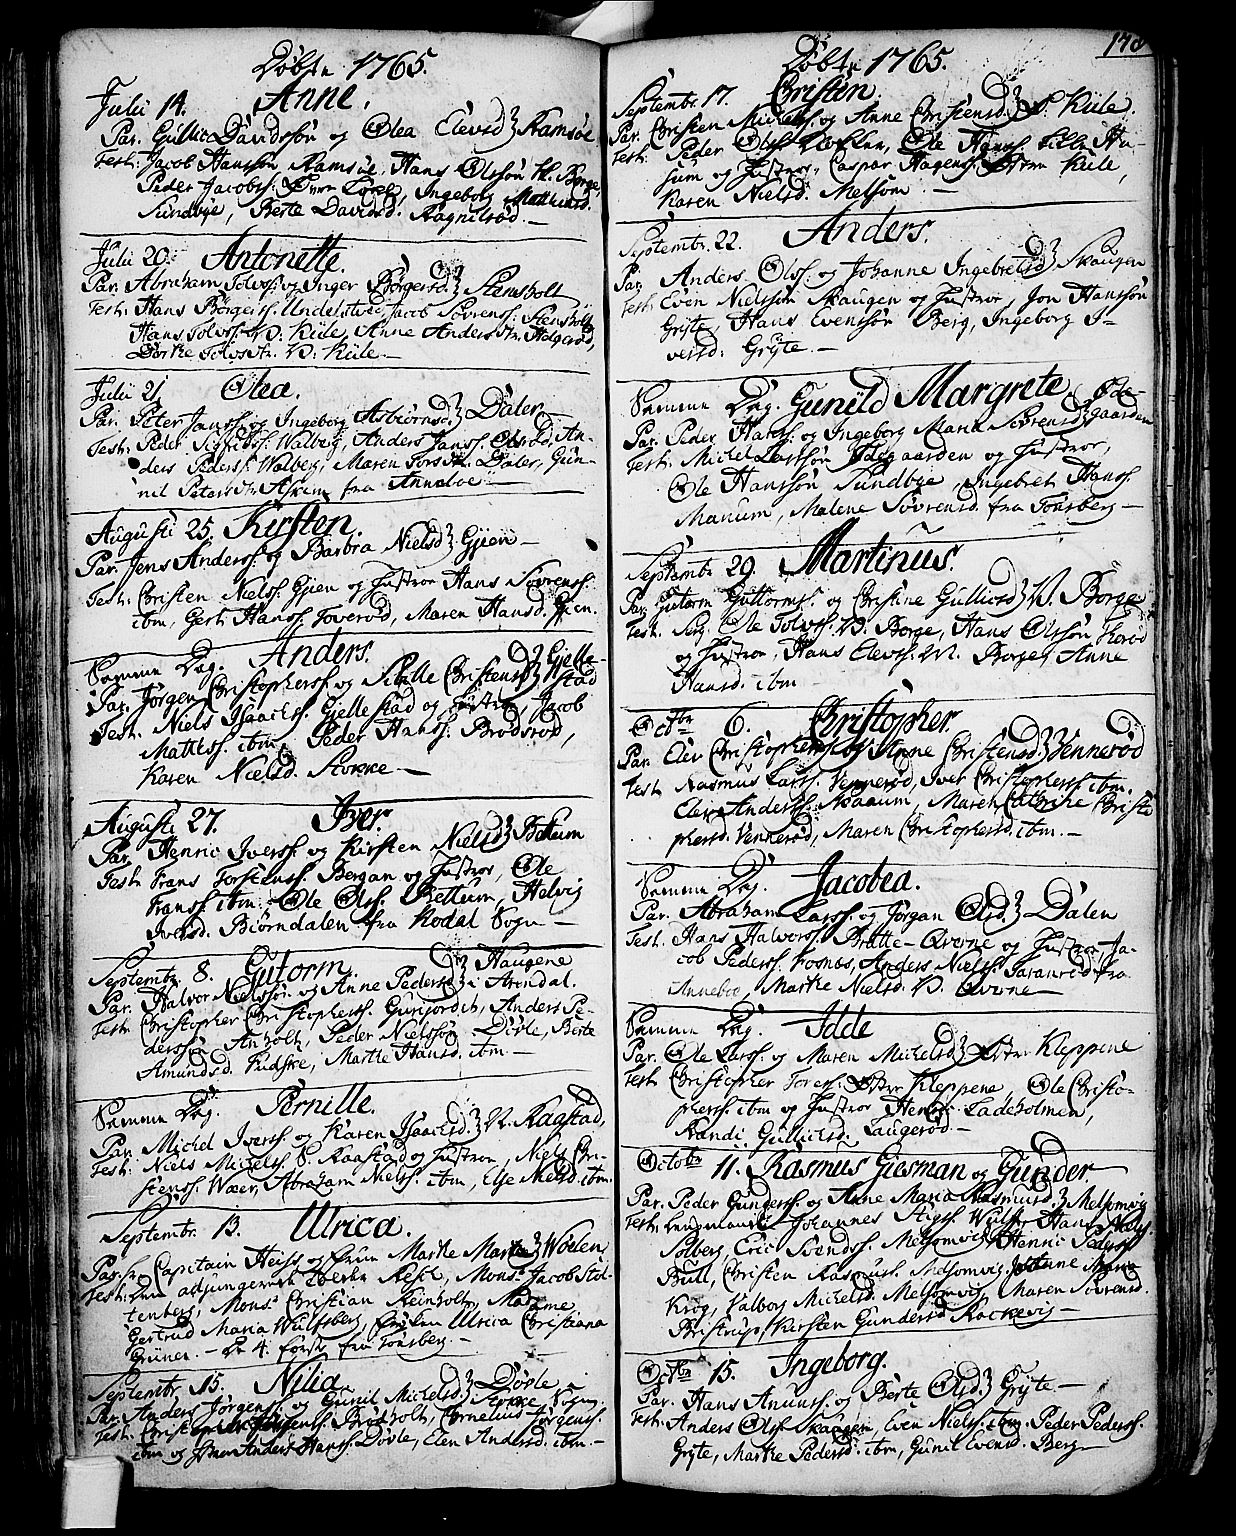 Døbte 1765.
Julii 14. Anne.
Par. Gullic Davidssön og Olea Elevsd. Ramsöe
Test: Jacob Hanssön Ramsöe, Hans Olssön Borge,
Peder Jacobss: Ingeborg Mathiasd.
Sundbye, Berte Davidsd. Ragnilröd.
Julii 20. Antonette.
Par. Abraham Tolvss: og Inger Börgersd. Stensholt
Test: Hans Börgerss. Undelstved, Jacob Sövrenss. Stensholt
Hans Tolvss. V: Kiile, Anne Andersdtr. Holgeröd,
Dorthe Tolvsdtr. V: Kiile.
Julii 21 Olea.
Par. Peter Janss: og Ingeborg Asbiörnsd. Daler
Test: Peder Walberg, Anders Janss. An-
ders Pederss. Walberg, Maren Daler, Gun-
nil Petersdtr. Askim fra Anneboe
Augusti 25. Kirsten.
Par. Jens Anderss. og Barbra Nielsd. Gjien
Test: Christen Nielss. Gjien og Hustroe Hans Sövrenss:
ibm, Gert Hanss. Toveröd, Maren Hansd. Gjien.
Samme Dag. Anders.
Par. Jörgen Christopherss. og Sibille Christensd. Gjelle-
stad
Test. Niels Isaachs. Gjellestad og Hustroe, Jacob
Mathiss. ibm, Peder Hanss. Brödsröd,
Karen Nielsd. Storke
Augusti 27. Iver.
Par. Henric Iverss. og Kirsten Nielsd. Bettum
Test: Frans Torstenss. Bergan og Hustroe, Ole
Franss ibm. Ole Olss. Bettum, Helvig
Iversd. Biörndalen fra Kodal Sogn
Septembr. 8. Gutorm.
Par. Halvor Nielssön og Anne Pedersd. Haugene
i Arendal.
Test: Christopher Christopherss. Anders Pe-
derssön Anholt, Peder Nielssön Dövle, Berte
Amundsd. Marthe Hansd. ibm.
Samme Dag. Pernille.
Par. Michel Iverss. og Karen Isaachsd. N. Raastad,
Test: Niels Michelss S. Raastad og Hustroe, Niels Chri-
stenss. Wæer, Abraham Nielss. ibm, Else Nielsd. ibm.
Septembr. 13. Ulrica.
Par. Hr. Capitain Heiss og Frue Marthe Maria Wöelen
Test: Den adjungerede Mons. Jacob Stol-
tenberg, Mons. Christian Reinholt, Madame
Gertrud Maria Wulfsberg, Fröken Ulrica Christiana
Grüner. De 4. fra Tönsberg.
Septembr. 15. Nilia
Par. Anders Jörgenss. og Gunil Michelsd. Dövle i
Storke Sogn
Test: Brodholt, Cornelius Jörgenss.
ibm og Anders Hanss. Dövle, Elen Andersd. ibm.
178
Døbte 1765.
Septembr. 17. Christen.
Par. Christen Michelss. og Anne Christensd. Kiile.
Test: Peder Olss. Ole Hanss. Lille Hu-
sum og Hustroe, Caspar Hagens. Kiile,
Karen Nielsd. Melsom
Septembr. 22. Anders.
Par Anders Olss. og Johanne Ingebretsd. Skaugen
Test: Even Nielssön Skaugen og Hustroe, Jon Hanssön
Gryte, Hans Evenssön Berg, Ingeborg I-
versd: Gryte.
Samme Dag. Gunild Margrete
Par. Peder Hanss: og Ingeborg Maria Sövrensd. Öde-
gaarden
Test: Michel Larssön Ödegaarden og Hustroe,
Ole Hanssön Sundbye, Ingebret Hanss.
Manum, Malene Sövrensd. fra Tönsberg
Septembr 29 Martinus.
Par. Gutorm Guttormss. og Christine Gulliksd. N. Borge
Test. Ole Tolvss. V. Borge, Hans Olssön
og Hustroe, Hans Elevss. M. Borge, Anne
Hansd. ibm
Octobr 6. Christopher.
Par. Elev Christopherss. og Anne Christensd. Venneröd
Test. Rasmus Larss. Venneröd, Iver Christopherss ibm.
Elev Anderss. Skaaum, Maren Cathrine Christo
phersd. Venneröd, Maren Christophersd. ibm.
Samme Dag. Jacobea.
Par. Abraham Larss. og Jörgan Olsd. Dalen
Test. Hans Halvorss. Bratte-Qverne og Hustroe, Ja-
cob Pederss. Fosnes, Anders Nielss. fra
Anneboe, Marthe Nielsd. V. Qverne
Samme Dag. Idde
Par. Ole Larss. og Maren Michelsd. Kleppene
Test: Christopher Toress. Kleppene, Ole Christo-
pherss. ibm og Hustroe Henric Ladeholmen,
Randi Gullichsd. Laugeröd
October 11. Rasmus Giesman og Gunder
Par. Peder Gunderss. og Anne Maria Rasmusd. Melsomvig
Test: Johannes Stiss. Wulf, Hans Nielss.
Solberg, Eric Svendss. Melsomvig, Henric Pederss.
Bull, Christen Rasmuss. Melsomvig, Anne Maria
Krog, Valborg Michelsd. Melsomvig, Maren Sövrensd.
Bristrup, Kirsten Gundersd. Rackevig
Octobr 15. Ingeborg.
Par. Hans Amunss. og Berte Olsd. Gryte.
Test. Anders Olss. Skaugen, Even Nielss. ibm. Peder Pederss.
Gryte, Marthe Pedersd. ibm, Gunil Evensd. Berg